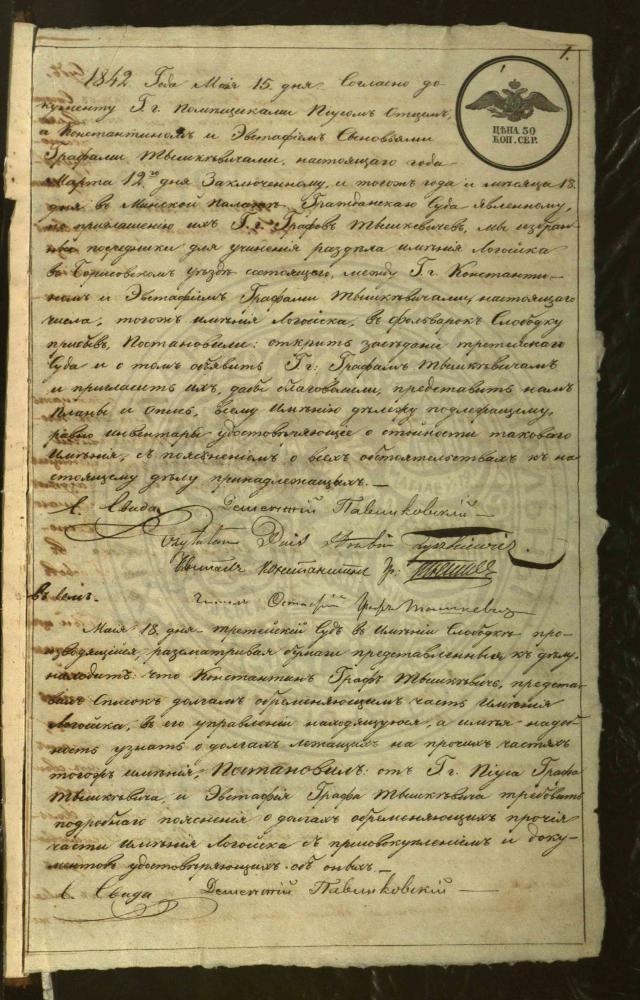 1.
ЦѢНА 50
КОП. СЕР.
1842 Года Мая 15 дня. Согласно до
кументу Г.г. Помѣщиками Піусомъ Отцемъ,
а Константиномъ и Эвстафіемъ Сыновьями
Графами Тышкѣвичами, настоящаго года
Марта 12го дня Заключенному, и тогожъ года и мѣсяца 18.
дня въ Минской Палатѣ Гражданскаго Суда явленному,
по приглашенію ихъ Г.г. Графовъ Тышкевичевъ, мы избран
ные посредники для учиненія раздѣла имѣнія Логойска
въ Борисовскомъ уѣздѣ состоящаго, между Г.г. Константи-
номъ и Эвстафіемъ Графами Тышкѣвичами, настоящаго
числа, тогожъ имѣнія Логойска, въ фольварокъ Слободку
прибывъ, Постановили: открыть засѣданіе третейскаго
Суда и о томъ объявить Г.г. Графамъ Тышкѣвичамъ
и пригласить ихъ, дабы благоволили, представить намъ
планы и опись, всему имѣнію дѣлежу подлежащему,
равно инвентарь удостовѣряющіе о стойности таковаго
Имѣнія, съ поясненіемъ о всѣхъ обстоятельствахъ къ на
стоящему дѣлу принадлежащихъ. —
Свада Деменскій Павликовскій —
Czytałem Pius Hrabia Tyszkiewicz.
Читалъ Константинъ Гр:
Читалъ Остафій Графъ Тышкевичъ
Маія 18. дня третейскій Судъ въ Имѣніи Слободкѣ про-
изводящійся, разсматривая бумаги представленныя къ дѣлу,
находитъ: что Константинъ Графъ Тышкѣвичъ, предста-
вилъ списокъ долгамъ обременяющимъ часть Имѣнія
Логойска, въ его управленіи находящуюся, а имѣя надоб
ность узнать о долгахъ лежащихъ на прочихъ частяхъ
тогожъ имѣнія, Постановилъ: отъ Г.г. Піуса Графа
Тышкѣвича, и Эвстафія Графа Тышкѣвича требовать
подробнаго поясненія о долгахъ обременяющихъ прочія
части имѣнія Логойска съ присовокупленіемъ и доку-
ментовъ удостовѣряющихъ объ оныхъ. —
Свада Деменскій Павликовскій —